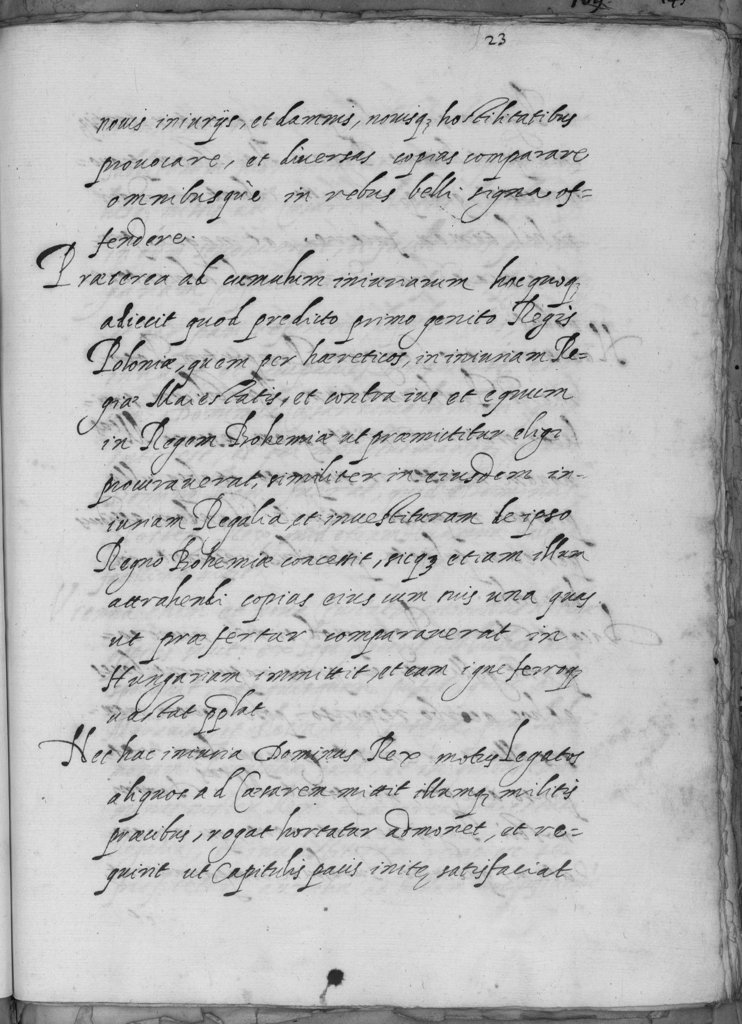 23
nouis iniurijs, et damnis, nouisq; hostilitatibus
prouocare, et diuersas copias comparare
omnibusquè in rebus belli signa os=
tendere.
Præterea ad cumulum iniuriarum hoc quoq;
adiecit quod predicto primo genito Regis
Poloniæ, quem per hæreticos, in iniuriam Re=
giæ Maiestatis, et contra ius et equum
in Regem Bohemiæ ut præmittitur eligi
procurauerat, similiter in eiusdem in=
iuriam Regalia et inuestituram de ipso
Regno Bohemiæ concessit, sicq; etiam illum
attrahendi copias eius cum suis una quas
ut præfertur comparauerat in
Hungariam immittit, et eam igne ferroq;
uastat
Nec hac iniuria Dominus Rex motus Legatos
aliquot ad Cæsarem mittit illumq; militis
præcibus, rogat hortatur admonet, et re=
quirit ut Capitulis pacis initę satisfaciat